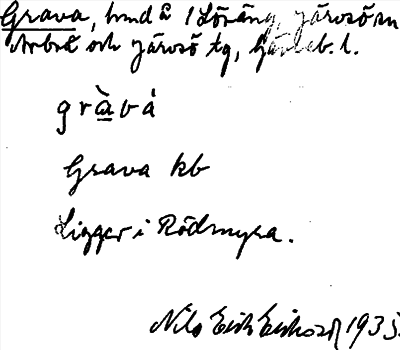 Grava, hmd å 1 Löräng, Järvsö sn
Arbrå och Järvsö tg, Gävleb. l.
gràvå
Grava kb
Ligger i Rödmyra.
Nils Erik Eriksson 1935.